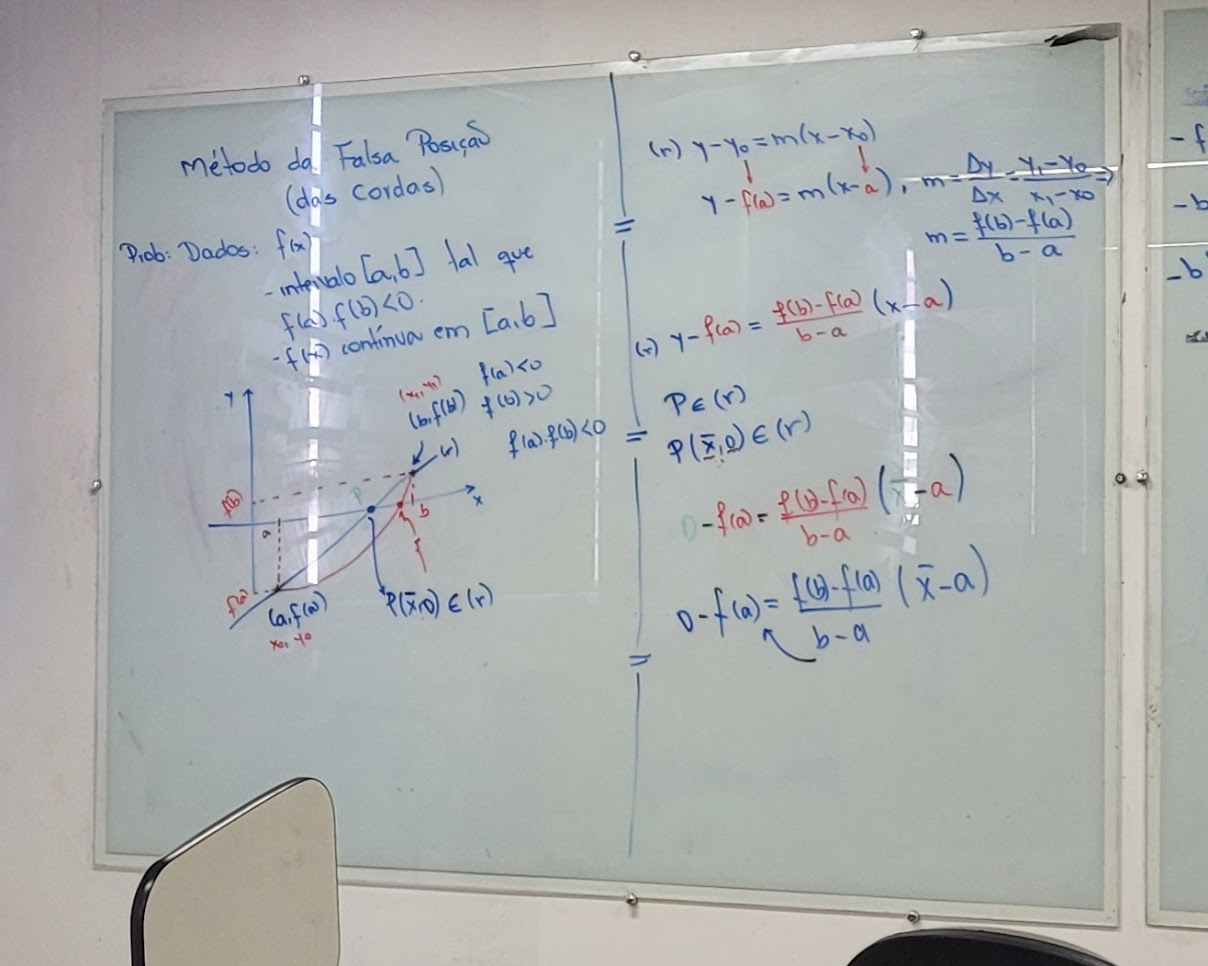 Método da Falsa Posição
(das Cordas)
Prob: Dados: f(x)
- intervalo [a,b] tal que
f(a).f(b)<0.
- f(x) contínua em [a,b]
f(a)<0
(x₁,y₁)
(b,f(b)) f(b)>0
f(a).f(b)<0
y
(r)
f(b)
P
x
a
b
f
f(a)
(a,f(a))
x₀, y₀
P(x̄,0) ∈ (r)
(r) y-y₀=m(x-x₀)
y-f(a)=m(x-a), m=Δy/Δx=(y₁-y₀)/(x₁-x₀) ⇒
m=(f(b)-f(a))/(b-a)
(r) y-f(a)=(f(b)-f(a))/(b-a) (x-a)
P∈(r)
P(x̄,0)∈(r)
0-f(a)=(f(b)-f(a))/(b-a) (x̄-a)
0-f(a)=(f(b)-f(a))/(b-a) (x̄-a)
- f
- b
- b